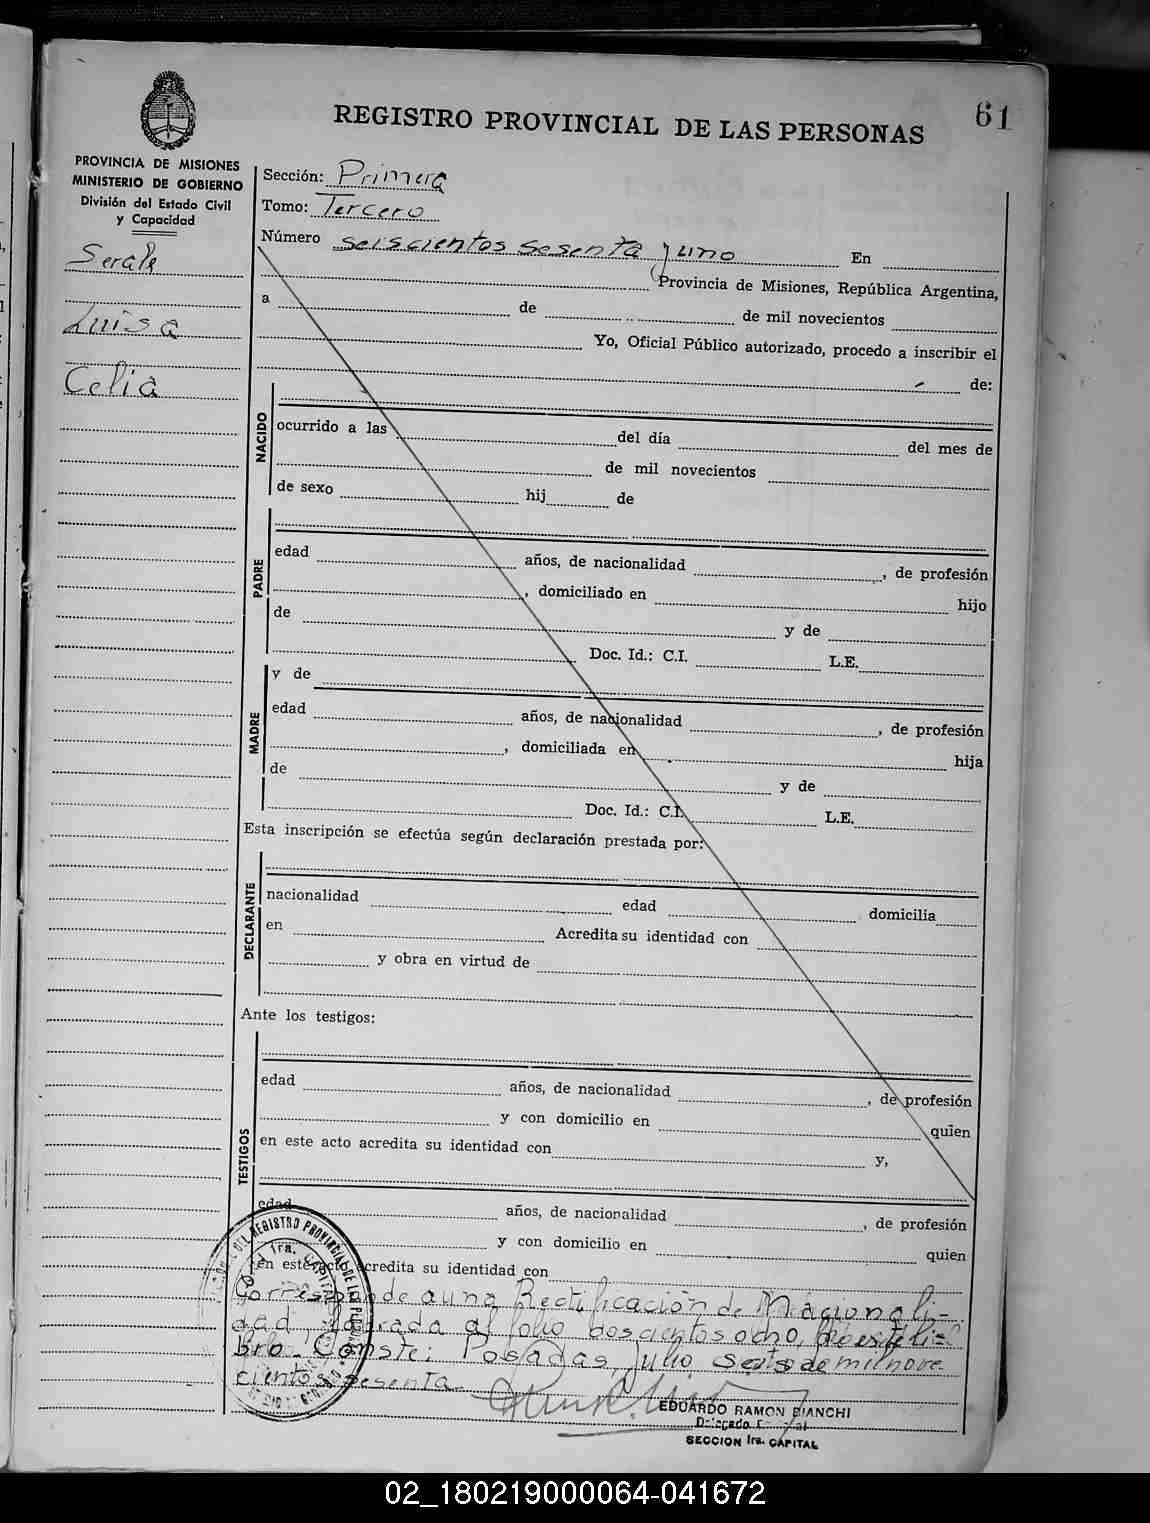 61
REGISTRO PROVINCIAL DE LAS PERSONAS
PROVINCIA DE MISIONES
MINISTERIO DE GOBIERNO
División del Estado Civil
y Capacidad
Serale
Luisa
Celia
Sección: Primera
Tomo: Tercero
Número seiscientos sesenta y uno En
Provincia de Misiones, República Argentina,
a de de mil novecientos
Yo, Oficial Público autorizado, procedo a inscribir el
de:
NACIDO
ocurrido a las del día del mes de
de mil novecientos
de sexo hij de
PADRE
edad años, de nacionalidad , de profesión
, domiciliado en hijo
de y de
Doc. Id.: C.I. L.E.
MADRE
y de
edad años, de nacionalidad , de profesión
, domiciliada en hija
de y de
Doc. Id.: C.I. L.E.
Esta inscripción se efectúa según declaración prestada por:
DECLARANTE
nacionalidad edad domicilia
en Acredita su identidad con
y obra en virtud de
Ante los testigos:
TESTIGOS
edad años, de nacionalidad , de profesión
y con domicilio en quien
en este acto acredita su identidad con y,
edad años, de nacionalidad , de profesión
y con domicilio en quien
en este acto acredita su identidad con
Corresponde a una Rectificación de Nacionali-
dad labrada al folio doscientos ocho, de este li-
bro. Conste: Posadas, Julio seis de mil nove-
cientos sesenta.
EDUARDO RAMON BIANCHI
Delegado
SECCION 1ra. CAPITAL
DEL REGISTRO PROVINCIAL DE LAS PERSONAS
1ra. CAPITAL
02_180219000064-041672